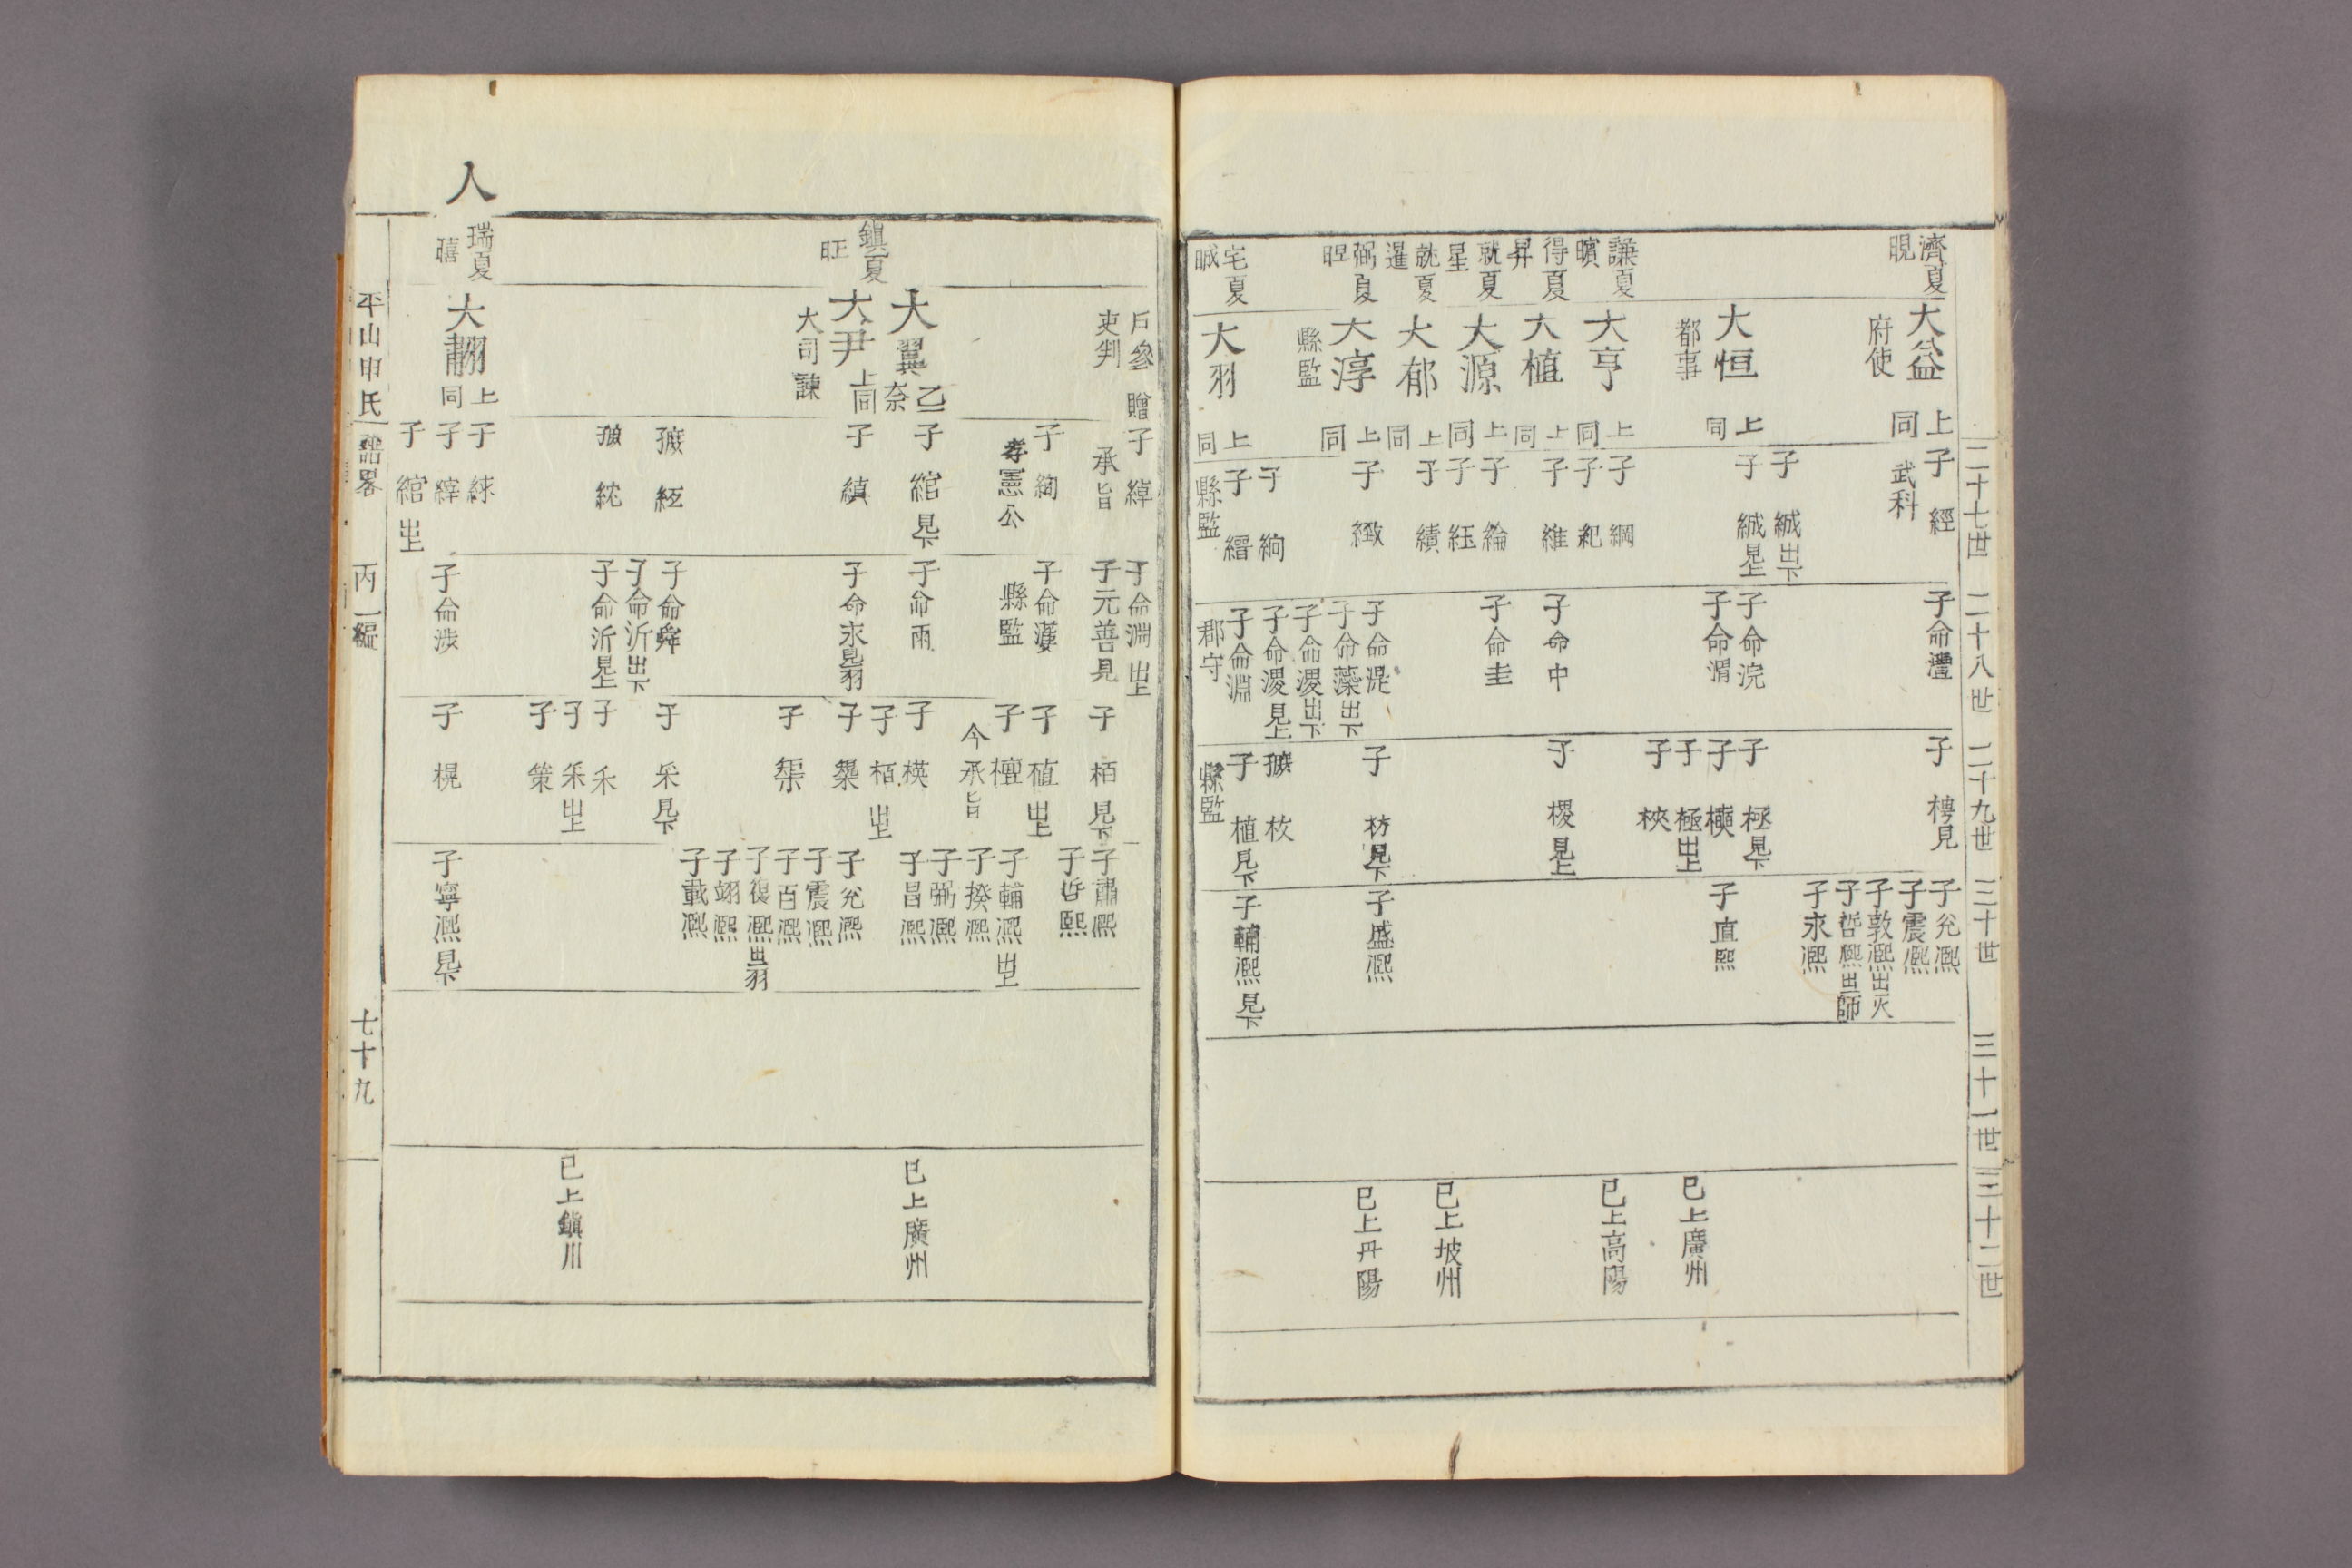 二十七世
二十八世
二十九世
三十世
三十一世
三十二世
濟夏
晛
大益
府使
上同
大恒
都事
上同
謙夏
大亨
上同
得夏
昇
大植
上同
就夏
星
大源
上同
就夏
暹
大郁
上同
弼夏
大淳
縣監
上同
宅夏
大羽
上同
子 經
武科
子 緎 出下
子 緎 見上
子 綱
子 紀
子 維
子 綸
子 紝
子 績
子 緻
子 絢
子 縉
縣監
子命灃
子命浣
子命渭
子命中
子命圭
子命湜
子命藻 出下
子命淵
郡守
子 極 見下
子 極 出上
子 㮨 見上
子 枋 見下
子 枚
子 植 見下
縣監
子兊熙
子震熙
子敦熙
子哲熙
子永熙
子直熙
子盛熙
子輔熙 見下
已上廣州
已上高陽
已上坡州
已上丹陽
戶參 贈
吏判
鎭夏
大翼
乙
大尹
上同
大司諫
人
瑞夏
大翿
上同
子 綽
承旨
子 絢
孝憲公
子 綰 見下
子 縝
子 綷
子 綰 出上
子命淵 出上
子元善 見
子命濩
縣監
子命雨
子命永
子命舜
子命沂 出下
子命沂 見上
子命涉
子 栢 見下
子 植 出上
子 檀
今承旨
子 楧
子 栢 出上
子 槼
子 榘
子 采 見下
子 禾
子 采 出上
子 策
子 棍
子肅熙
子哲熙
子輔熙 出上
子揆熙
子弼熙
子昌熙
子兊熙
子震熙
子百熙
子復熙
子翊熙
子載熙
子寧熙 見下
已上廣州
已上鎭川
平山申氏譜畧 丙一編 七十九